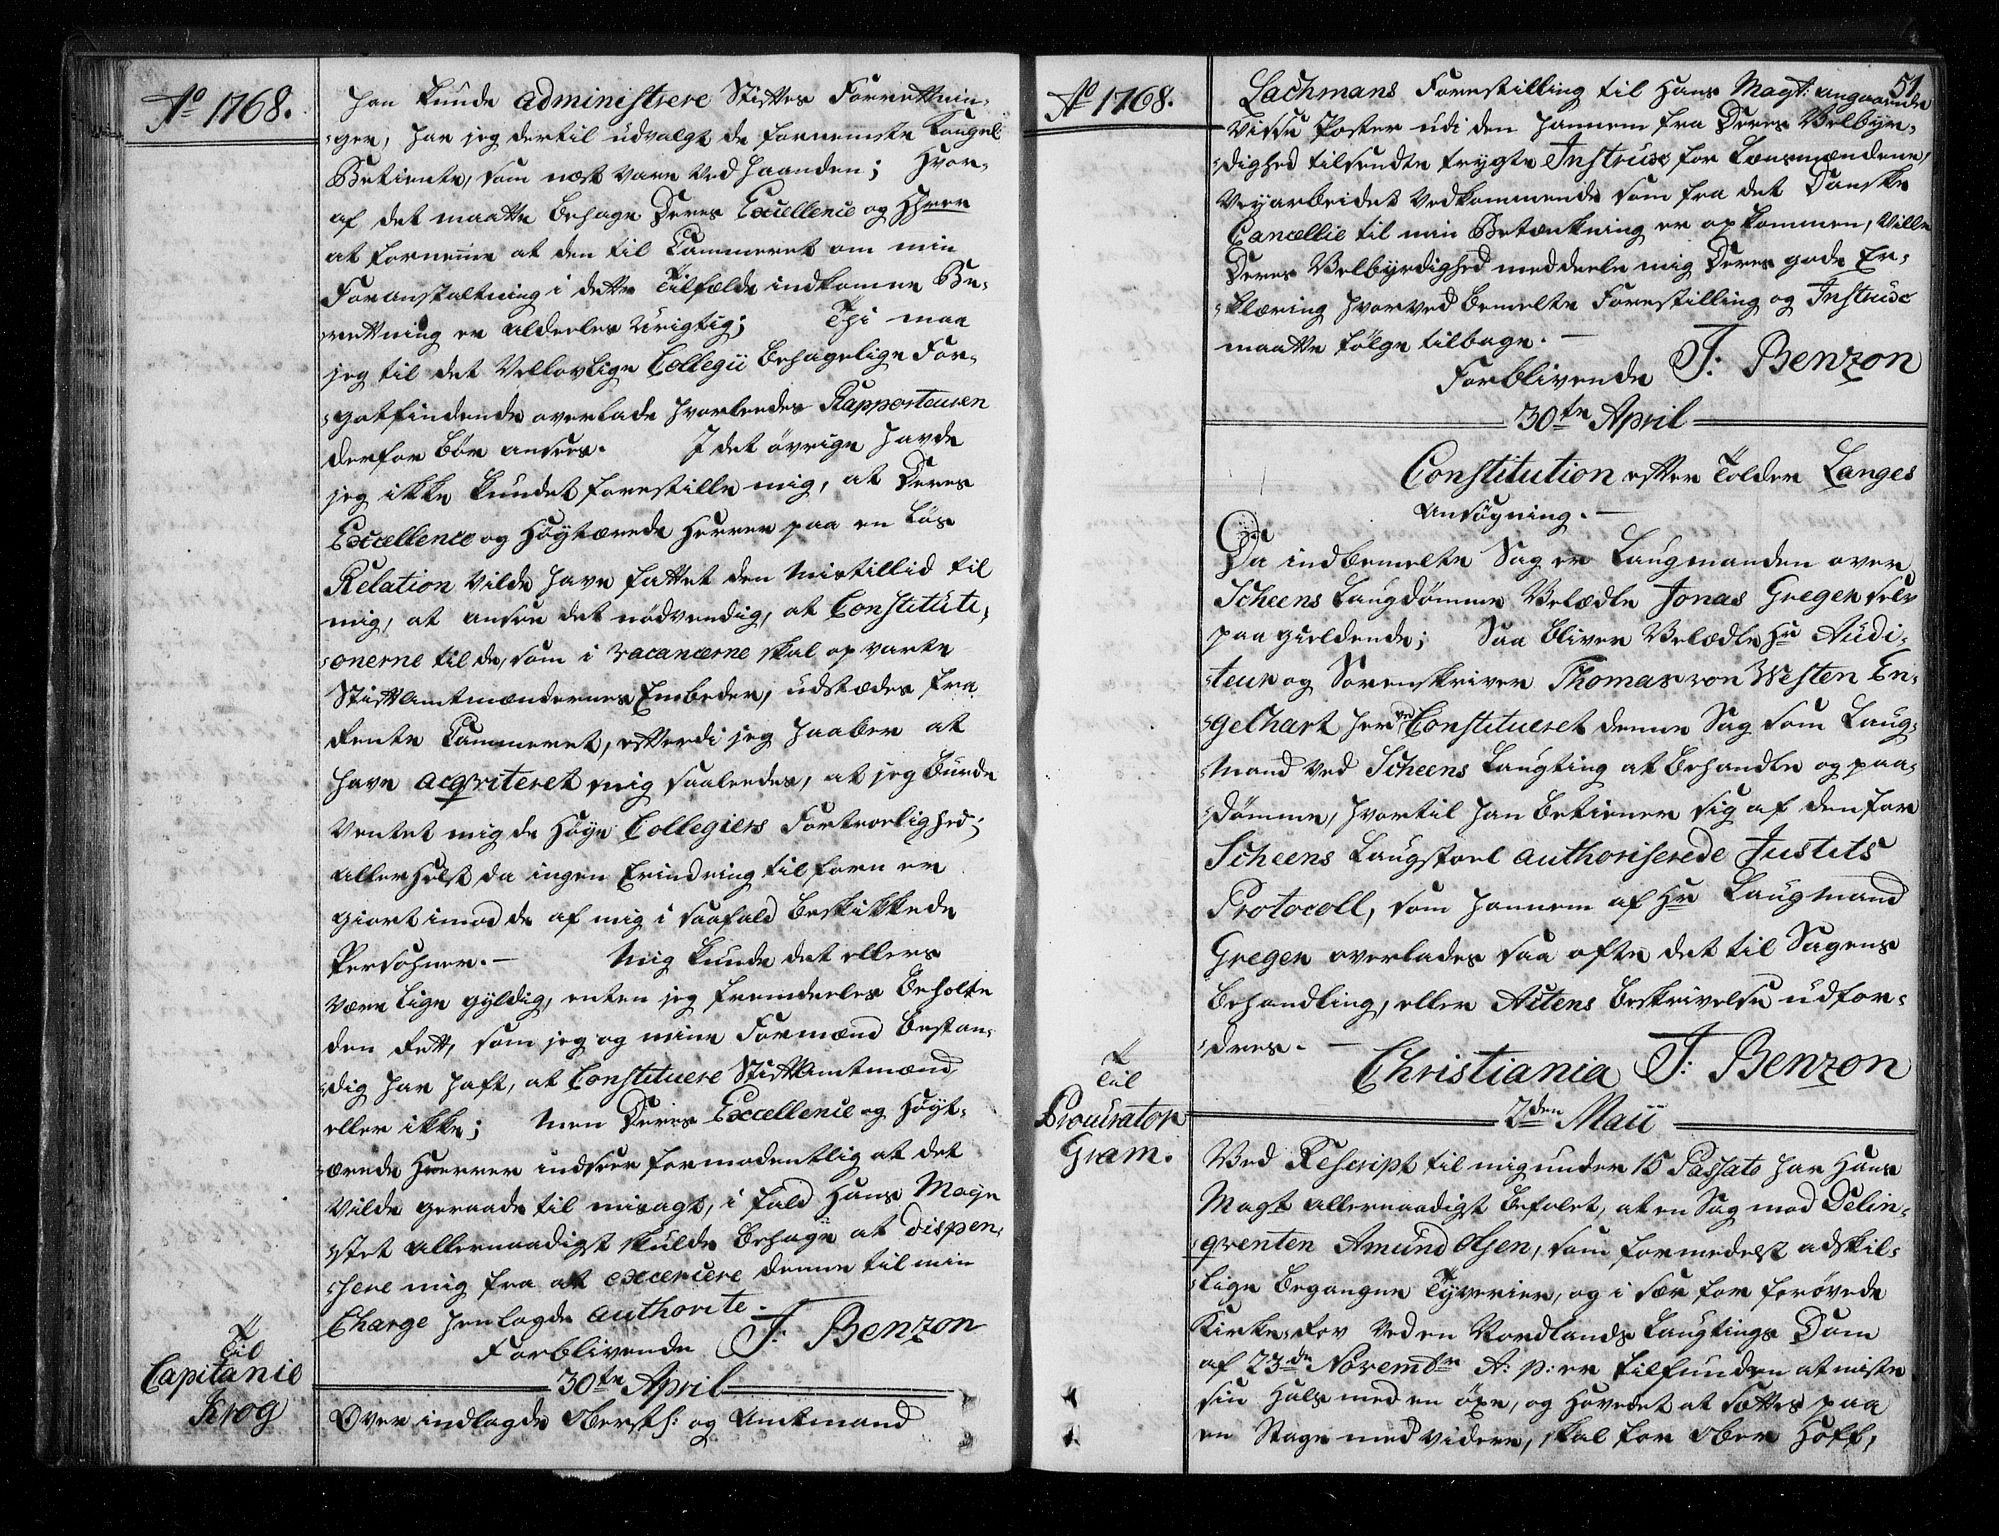 Ao 1768.
han kunde administrere Stiftes Forrettnin-
-ger, har jeg dertil udvalgt de fornemste Kongel:
Betiente, som næst vare ved haanden; Hvor-
af det maatte behage Deres Excellence og HHrer
at fornemme at den til Cammeret om min
Foranstaltning i dette Tilfælde indkomne Be-
-rettning er alderles urigtig; Thi maa
jeg til det Velovlige Collegii behagelige For-
-gotfindende overlade hvorledes Rapporteuren
derfor bör ansees. I det övrige havde
jeg ikke kundet forestille mig, at Deres
Excellence og Höytærede Herrer paa en lös
Relation vilde have fattet den Mistillid til
mig, at ansee det nödvendig, at Constituti-
-onerne til de, som i vacancerne skal opvarte
StiftAmtmændernes Embeder, udstædes fra
Rente Cammeret, efterdi jeg haaber at
have acqviteret mig saaledes, at jeg burde
ventet mig de Höye Collegiers Fortroelighed;
allerhelst da ingen Erindring tilforn er
giort imod de af mig i saafald beskikkede
Persohner.- Mig kunde det ellers
være lige gyldig, enten jeg fremdeeles beholte
den Rett, som jeg og mine Formænd bestan-
-dig har haft, at Constituere StiftAmtmænd
eller ikke; Men Deres Excellence og Höyt-
-ærede Herrer indseer formodentlig at det
vilde geraade til misagt, i fald Hans Maye
-stet allernaadigst skulde behage at dispen-
-sere mig fra at excercere denne til min
Charge henlagde authorite.
Forblivende J: Benzon
30te April
Til
Capitaine
Krog
Over indlagde Oberstl: og Amtmand
Ao 1768.
51
Lachmans Forestilling til Hans Mayt: angaaende
visse Poster udi den hannem fra Deres Velbyr-
-dighed tilsendte trygte Instrux for Lensmændene,
Veyarbeidet vedkommende som fra det Danske
Cancellie til min Betænkning er opkommen, ville
Deres Velbyrdighed meddeele mig Deres gode Er-
-klæring hvorved bemelte Forestilling og Instrux
maatte fölge tilbage.-
Forblivende J: Benzon
30te April
Constitution efter Tolder Langes
Ansögning.-
Da indbemelte Sag er Laugmanden over
Scheens Laugdömme Velædle Jonas Greger selv
paa gieldende; Saa bliver Velædle Hr Audi-
-teur og Sorenskriver Thomas von Westen En-
-gelhart herved Constitueret denne Sag som Laug-
-mand ved Scheens Laugting at behandle og paa-
-dömme, hvortil han betiener sig af den for
Scheens Laugstoel authoriserede Justits
Protocoll, som hannem af Hr Laugmand
Greger overlades saa ofte det til Sagens
behandling, eller Actens beskrivelse udfor-
-dres.-
Christiania J: Benzon
2den Maii
Til
Procurator
Gram.
Ved Rescript til mig under 15 Passato har Hans
Mayt allernaadigst befalet, at en Sag mod Delin-
-qventen Amund Olsen, som formedelst adskil-
-lige begangne Tyverier, og i sær for forövede
Kirke-Rov ved en Nordlands Laugtings Dom
af 23de Novembr A: p: er tilfunden at miste
sin Hals med en öxe, og Hovedet at sættes paa
en Stage med videre, skal for Ober Hoff,